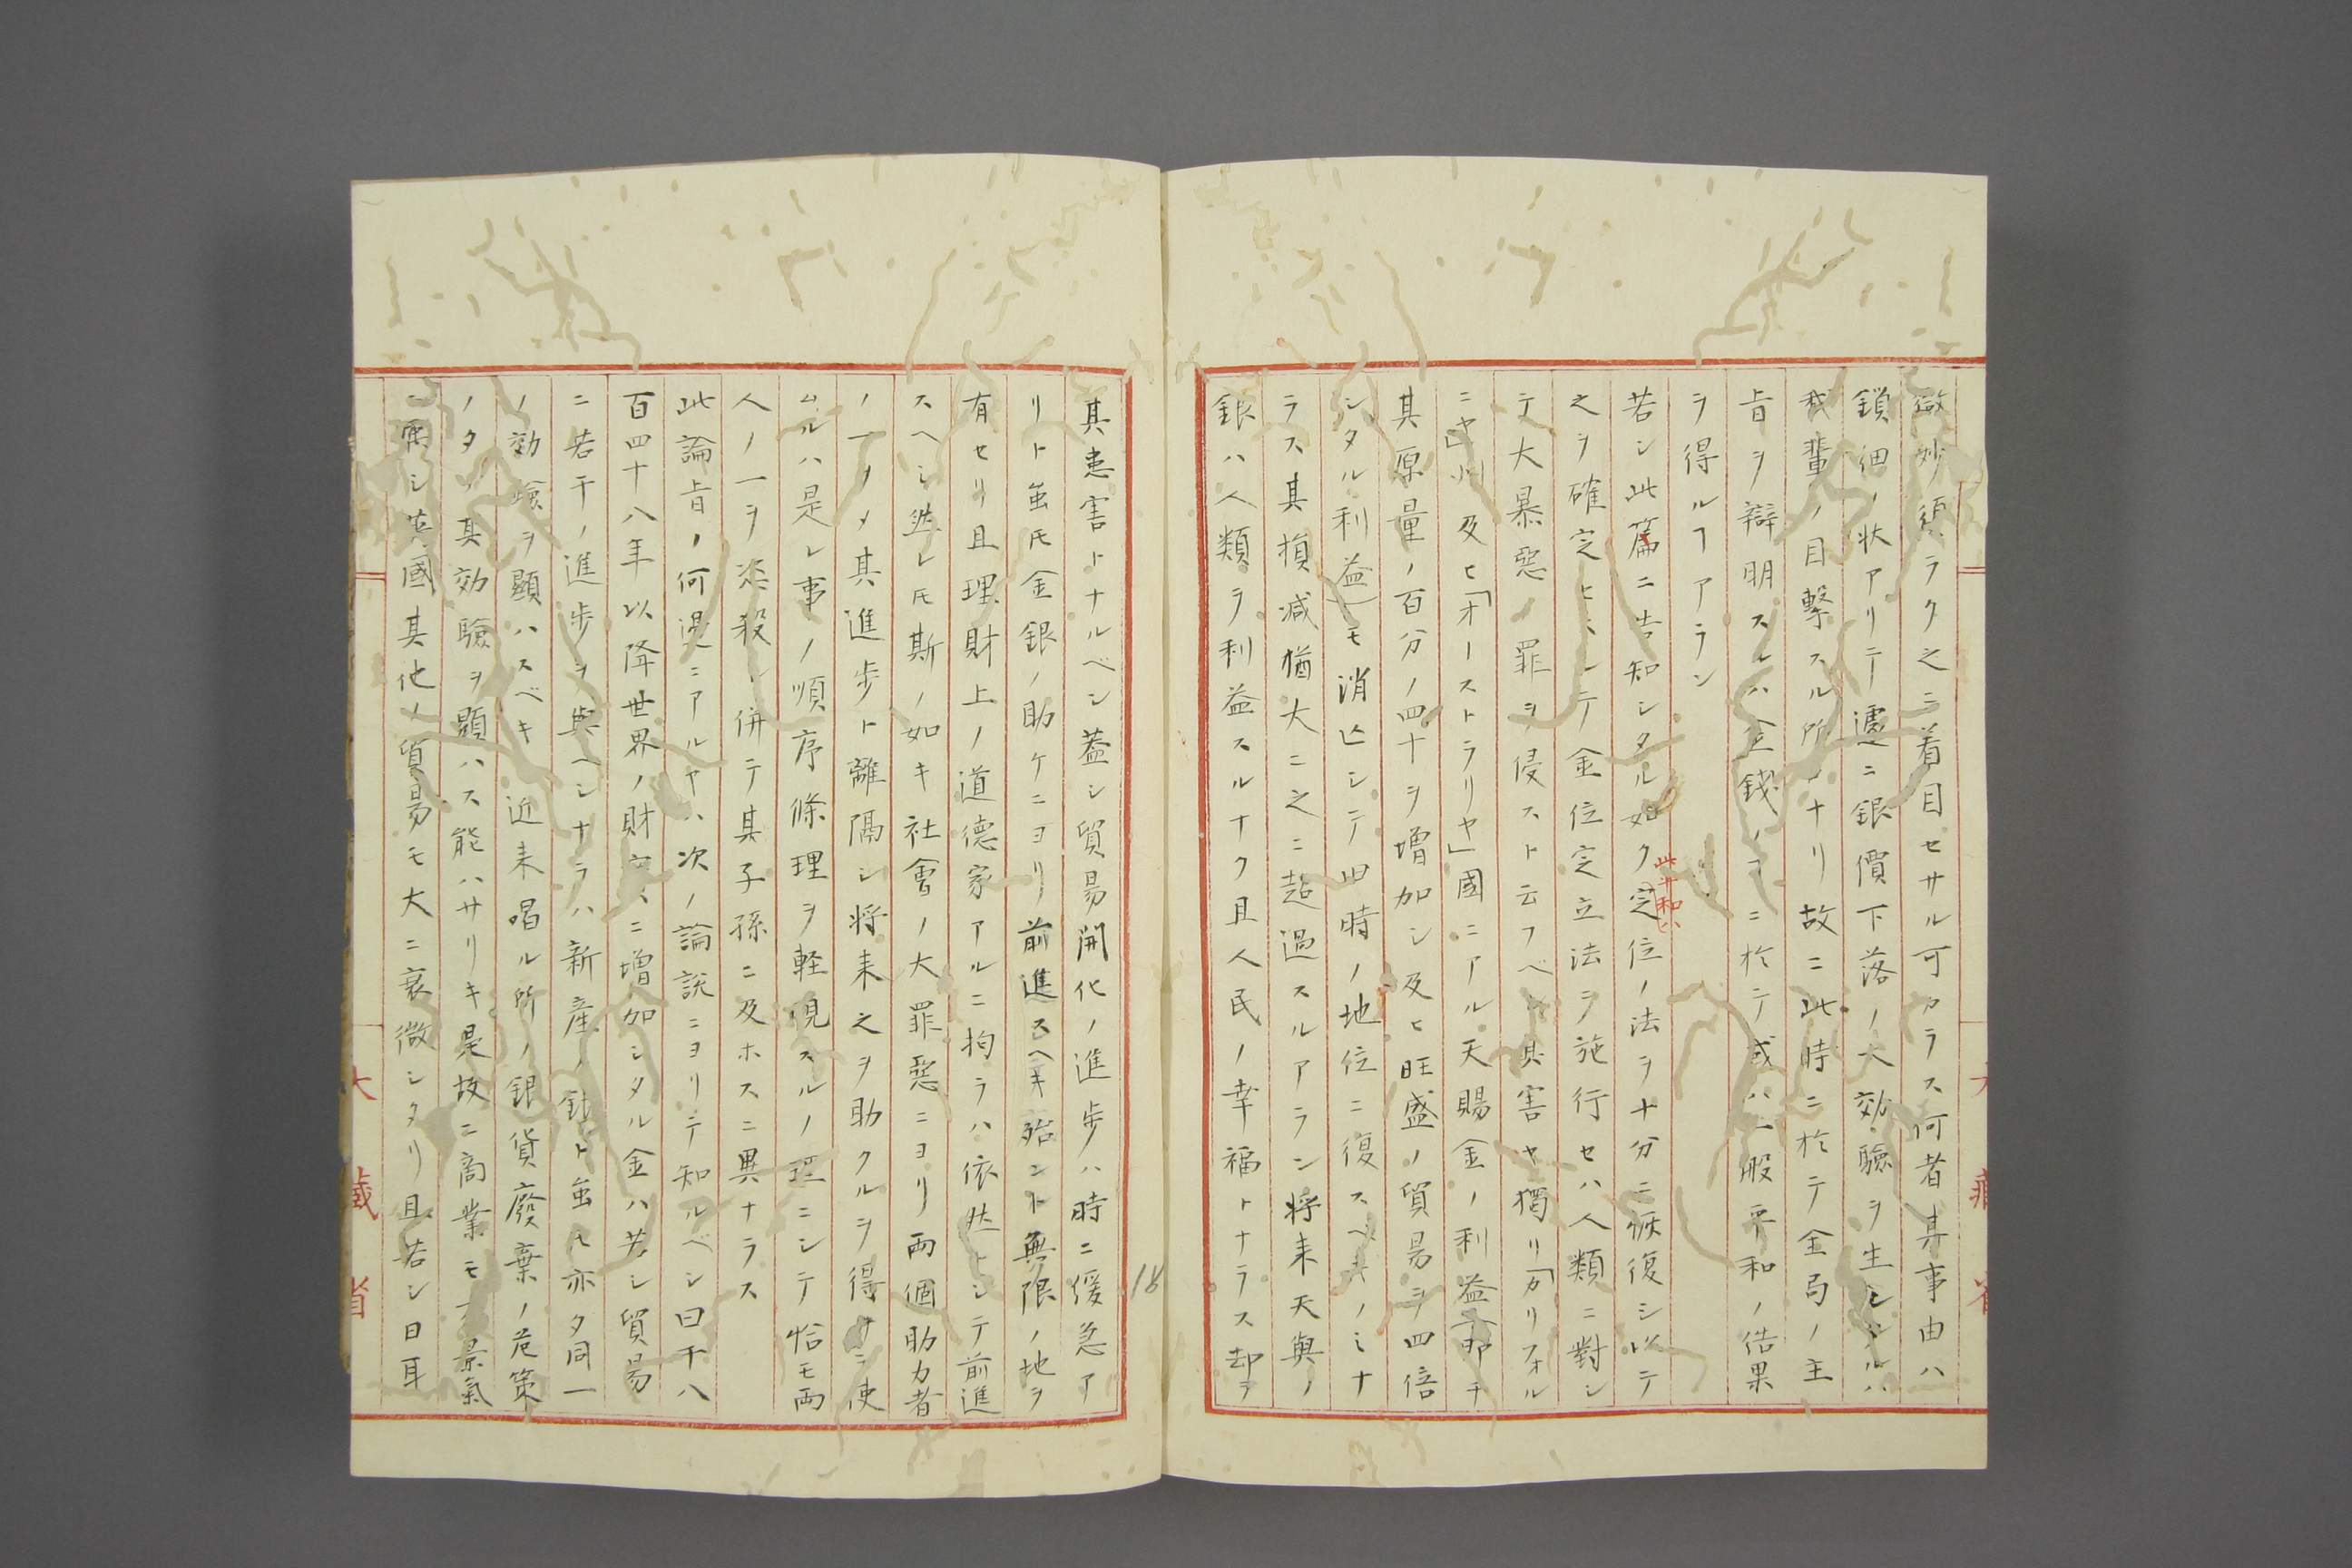 微妙須ラク之ニ着目セサル可カラス何者其事由ハ
鎖細ノ状アリテ遽ニ銀價下落ノ大効驗ヲ生シタルハ
我輩ノ目撃スル所ナリ故ニ此時ニ於テ金局ノ主
旨ヲ辯明スルハ金錢ノヿニ於テ或ハ一般平和ノ結果
ヲ得ルヿアラン
若シ此篇ニ告知シタル如ク定位ノ法ヲ十分ニ恢復シ以テ
之ヲ確定セスシテ金位定立法ヲ施行セハ人類ニ對シ
テ大暴惡ノ罪ヲ侵スト云フベシ其害ヤ獨リ「カリフォル
ニヤ」州及ヒ「オーストラリヤ」國ニアル天賜金ノ利益(即チ
其原量ノ百分ノ四十ヲ増加シ及ヒ旺盛ノ貿易ヲ四倍
シタル利益)モ消亡シテ旧時ノ地位ニ復スベキノミナ
ラス其損減猶大ニ之ニ超過スルアラン将来天與ノ
銀ハ人類ヲ利益スルナク且人民ノ幸福トナラス却テ
其患害トナルベシ蓋シ貿易開化ノ進歩ハ時ニ緩急ア
リト虽𪜈金銀ノ助ケニヨリ前進スヘキ殆ント無限ノ地ヲ
有セリ且理財上ノ道德家アルニ拘ラハ依然トシテ前進
スヘシ然レ𪜈斯ノ如キ社會ノ大罪惡ニヨリ両個助力者
ノ一ヲメ其進歩ト離隔シ将来之ヲ助クルヲ得サラ使
ムルハ是レ事ノ順序條理ヲ軽視スルノ理ニシテ恰モ両
人ノ一ヲ恣殺シ併テ其子孫ニ及ホスニ異ナラス
此論旨ノ何邊ニアルヤハ次ノ論説ニヨリテ知ルベシ曰千八
百四十八年以降世界ノ財寳ニ増加シタル金ハ若シ貿易
ニ若干ノ進歩ヲ與ヘシナラハ新産ノ銀ト虽モ亦タ同一
ノ効驗ヲ顯ハスベキ近来唱ル所ノ銀貨廢棄ノ危策
ノタメ其効驗ヲ顯ハス能ハサリキ是故ニ商業モ不景氣
ニ属シ英國其他ノ貿易モ大ニ衰微シタリ且若シ日耳
此平和ハ
大藏省
大藏省
18